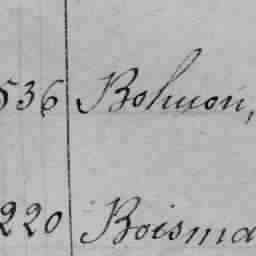 536 Bohuon,
220 Boisma